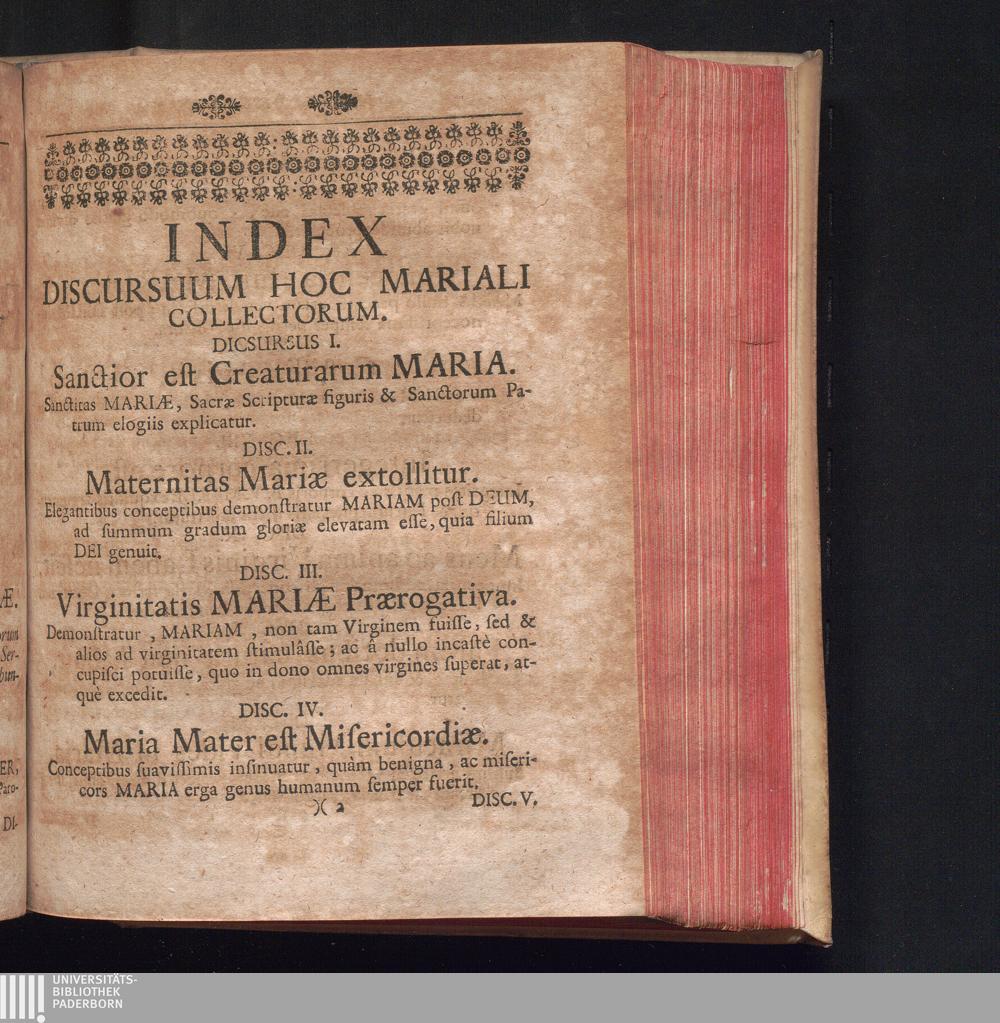 INDEX
DISCURSUUM HOC MARIALI
COLLECTORUM.
DICSURSUS I.
Sanctior eſt Creaturarum MARIA.
Sanctitas MARIÆ, Sacræ Scripturæ figuris & Sanctorum Pa-
trum elogiis explicatur.
DISC. II.
Maternitas Mariæ extollitur.
Elegantibus conceptibus demonſtratur MARIAM poſt DEUM,
ad ſummum gradum gloriæ elevatam eſſe, quia filium
DEI genuit.
DISC. III.
Virginitatis MARIÆ Prærogativa.
Demonſtratur, MARIAM, non tam Virginem fuiſſe, ſed &
alios ad virginitatem ſtimulâſſe; ac â nullo incaſtè con-
cupiſci potuiſſe, quo in dono omnes virgines ſuperat, at-
què excedit.
DISC. IV.
Maria Mater eſt Miſericordiæ.
Conceptibus ſuaviſſimis inſinuatur, quàm benigna, ac miſeri-
cors MARIA erga genus humanum ſemper fuerit.
)( 2
DISC. V.
Æ.
orum
Ser-
bun-
ER,
Paro-
DI-
UNIVERSITÄTS-
BIBLIOTHEK
PADERBORN